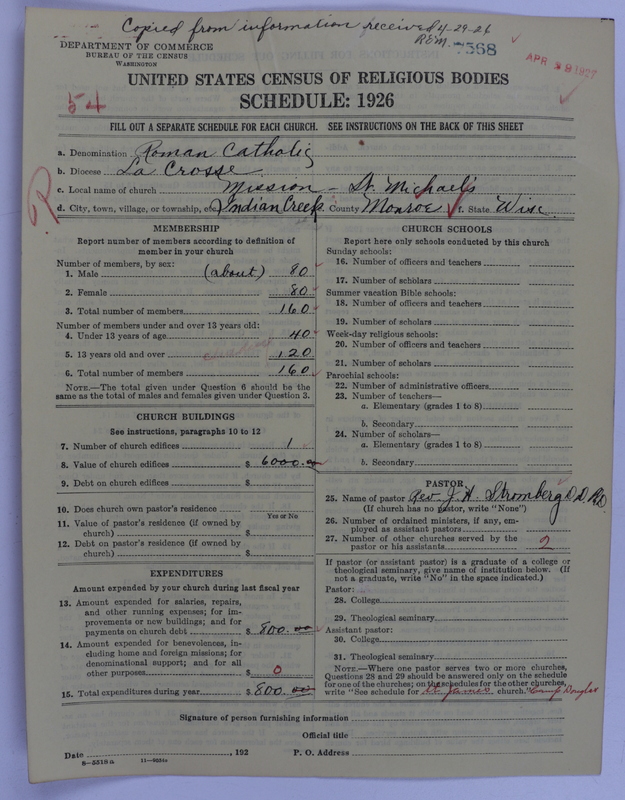 Copied from information received 4-29-26
R.E.M. 7568
APR 28 1927
DEPARTMENT OF COMMERCE
BUREAU OF THE CENSUS
WASHINGTON
UNITED STATES CENSUS OF RELIGIOUS BODIES
SCHEDULE: 1926
54
FILL OUT A SEPARATE SCHEDULE FOR EACH CHURCH. SEE INSTRUCTIONS ON THE BACK OF THIS SHEET
a. Denomination Roman Catholic
b. Diocese La Crosse
c. Local name of church Mission - St. Michael's
d. City, town, village, or township, etc. Indian Creek County Monroe f. State Wisc.
MEMBERSHIP
Report number of members according to definition of
member in your church
Number of members, by sex:
1. Male (about) 80
2. Female 80
3. Total number of members 160
Number of members under and over 13 years old:
4. Under 13 years of age 40
5. 13 years old and over 120
6. Total number of members 160
NOTE.—The total given under Question 6 should be the
same as the total of males and females given under Question 3.
CHURCH BUILDINGS
See instructions, paragraphs 10 to 12
7. Number of church edifices 1
8. Value of church edifices $ 6000.00
9. Debt on church edifices $
10. Does church own pastor's residence
Yes or No
11. Value of pastor's residence (if owned by
church) $
12. Debt on pastor's residence (if owned by
church) $
EXPENDITURES
Amount expended by your church during last fiscal year
13. Amount expended for salaries, repairs,
and other running expenses; for im-
provements or new buildings; and for
payments on church debt $ 800.00
14. Amount expended for benevolences, in-
cluding home and foreign missions; for
denominational support; and for all
other purposes $ 0
15. Total expenditures during year $ 800.00
CHURCH SCHOOLS
Report here only schools conducted by this church
Sunday schools:
16. Number of officers and teachers
17. Number of scholars
Summer vacation Bible schools:
18. Number of officers and teachers
19. Number of scholars
Week-day religious schools:
20. Number of officers and teachers
21. Number of scholars
Parochial schools:
22. Number of administrative officers
23. Number of teachers—
a. Elementary (grades 1 to 8)
b. Secondary
24. Number of scholars—
a. Elementary (grades 1 to 8)
b. Secondary
PASTOR
25. Name of pastor Rev. J. H. Stromberg
(If church has no pastor, write "None")
26. Number of ordained ministers, if any, em-
ployed as assistant pastors
27. Number of other churches served by the
pastor or his assistants 2
If pastor (or assistant pastor) is a graduate of a college or
theological seminary, give name of institution below. (If
not a graduate, write "No" in the space indicated.)
Pastor:
28. College
29. Theological seminary
Assistant pastor:
30. College
31. Theological seminary
NOTE.—Where one pastor serves two or more churches,
Questions 28 and 29 should be answered only on the schedule
for one of the churches; on the schedules for the other churches,
write "See schedule for St. James church." Camp Douglas
Signature of person furnishing information
Official title
Date , 192 P. O. Address
8—5518a 11—8534a